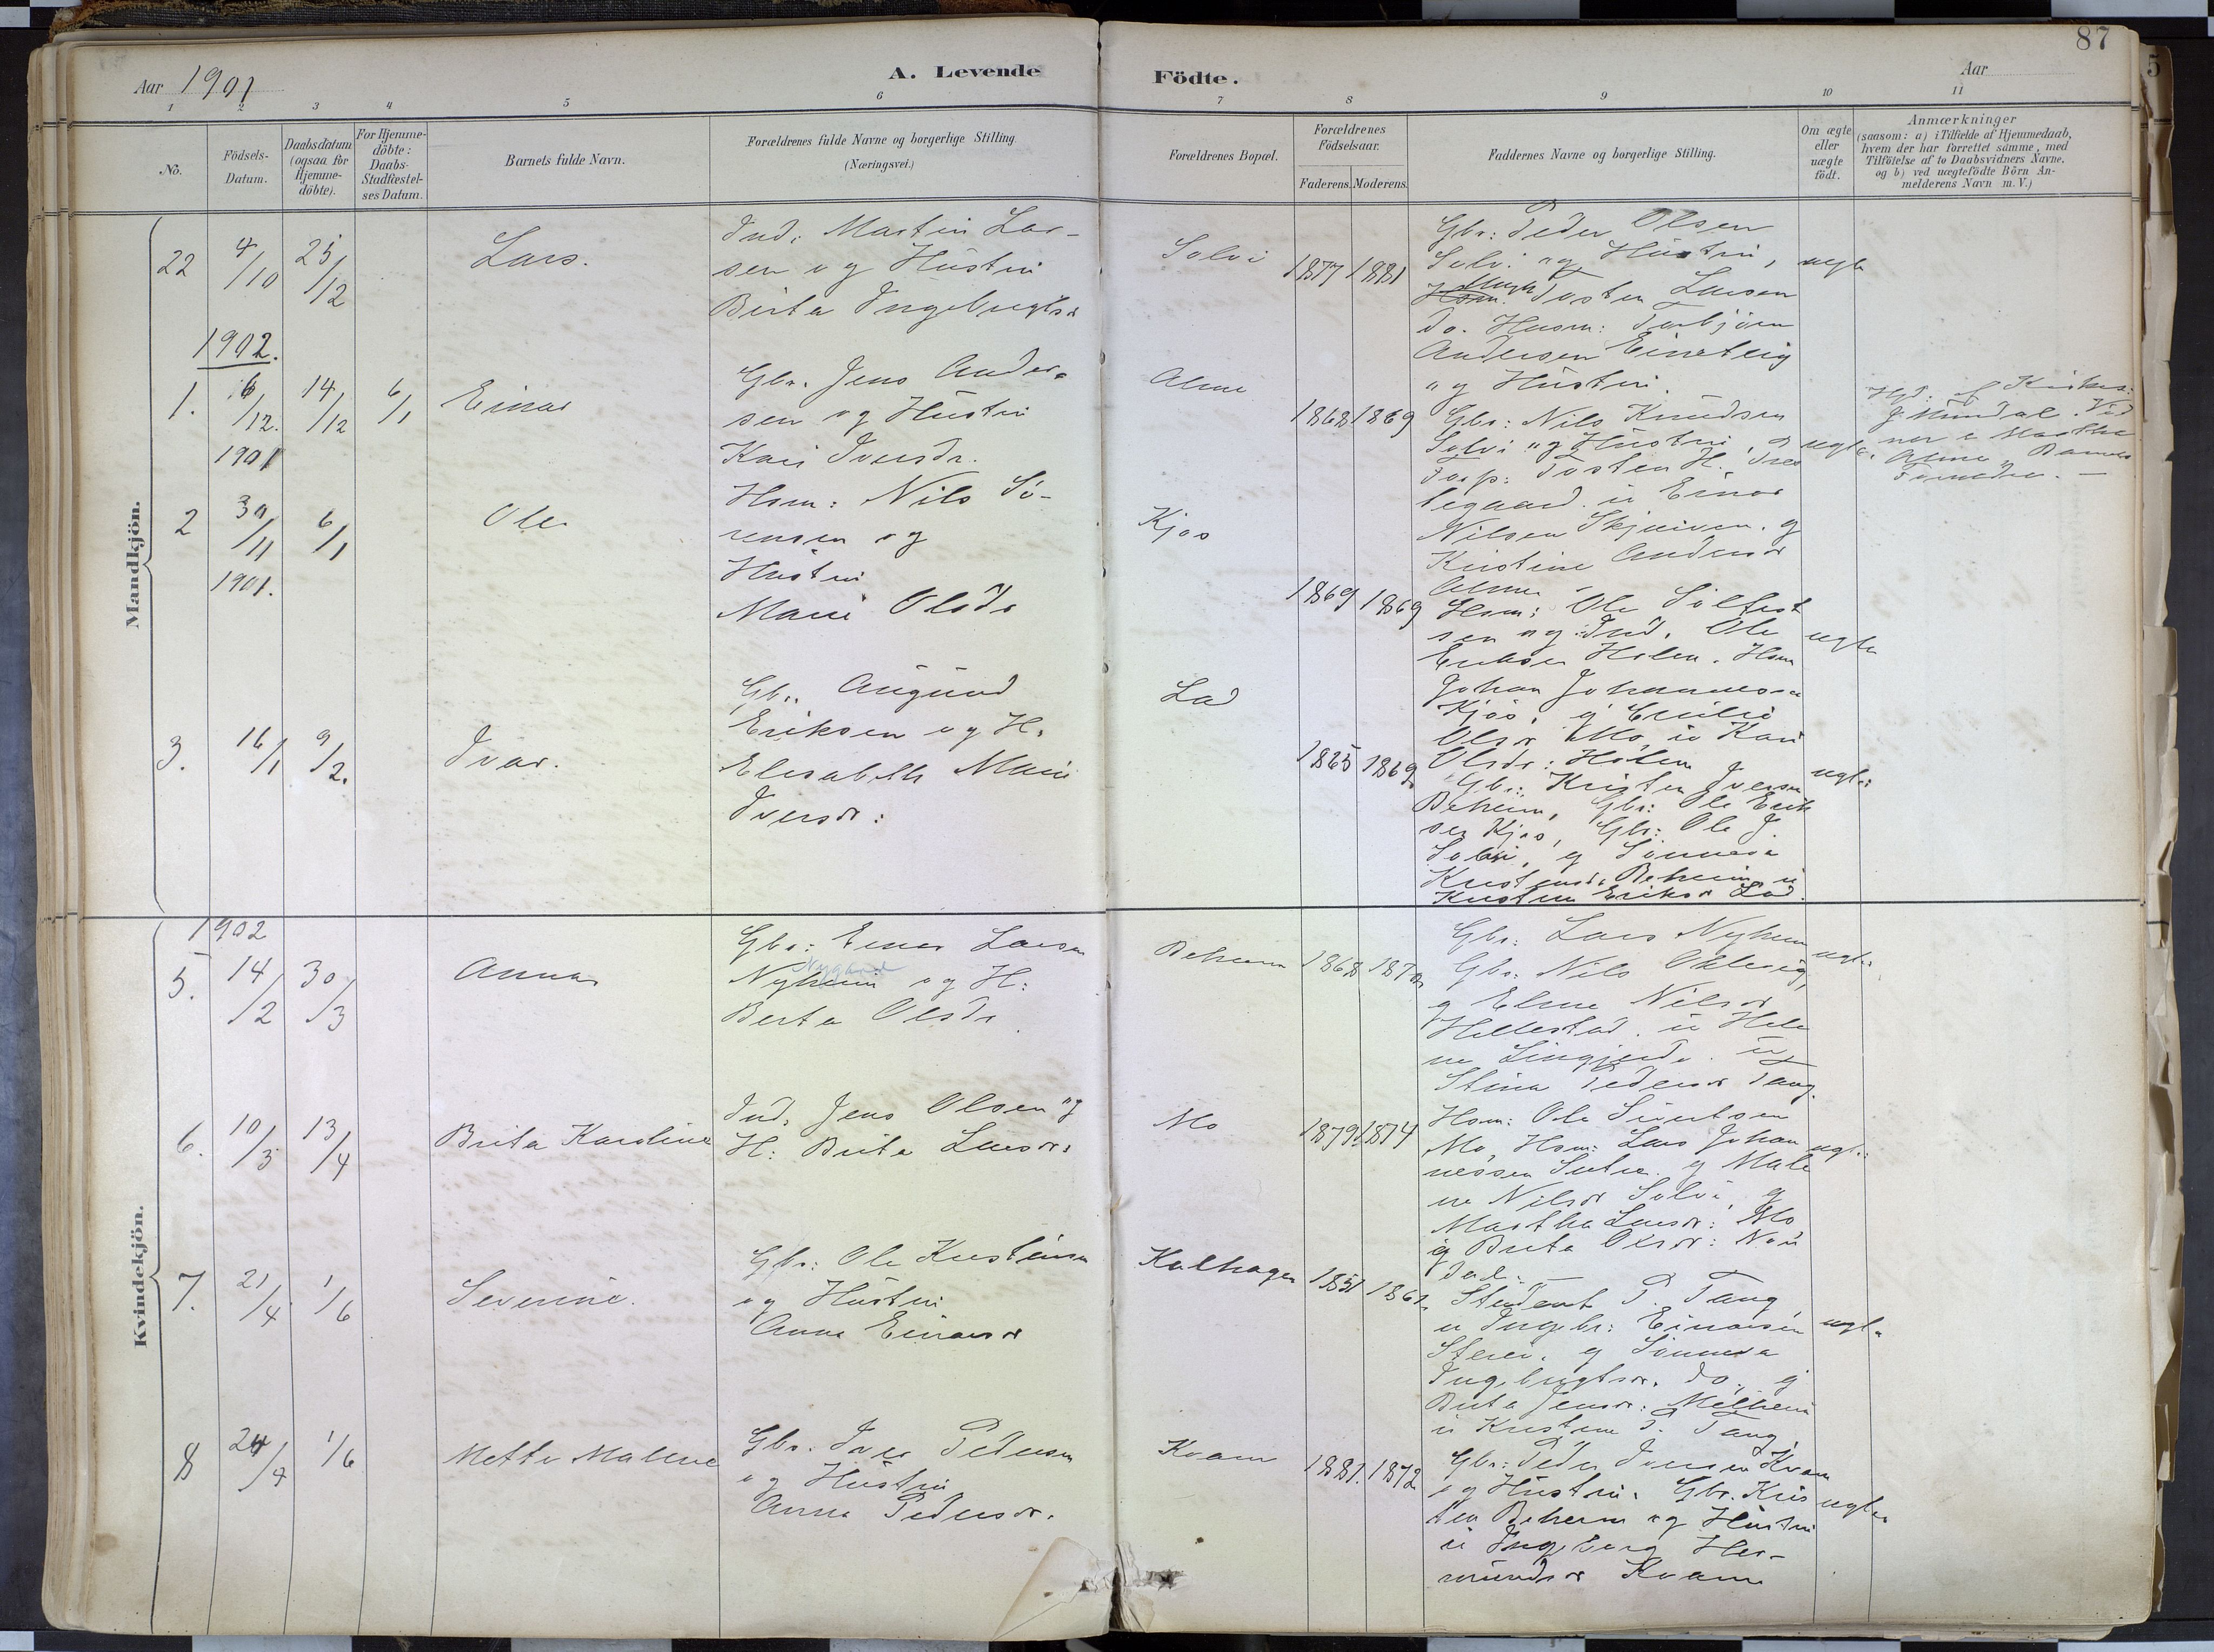 87
Aar 1901
A. Levende Födte.
Aar
1 2 3 4 5 6 7 8 9 10 11
No.
Födsels-
Datum.
Daabsdatum
(ogsaa for
Hjemme-
döbte).
For Hjemme-
döbte:
Daabs-
Stadfæstel-
ses Datum.
Barnets fulde Navn.
Forældrenes fulde Navne og borgerlige Stilling
(Næringsvei.)
Forældrenes Bopæl.
Forældrenes
Födselsaar.
Faderens. Moderens.
Faddernes Navne og borgerlige Stilling.
Om ægte
eller
uægte
födt.
Anmærkninger
(saasom: a) i Tilfælde af Hjemmedaab,
hvem der har forrettet samme, med
Tilföielse af to Daabsvidners Navne.
og b) ved uægtefödte Börn An-
melderens Navn m. V.)
Mandkjön.
22 4/10 25/12 Lars.
Ind: Martin Lar-
sen og Hustru
Brita Ingebrigtsd
Solvi 1877 1881
Gbr: Peder Olsen
Solvi og Hustru,
Tosten Larsen
do. Husm: Torbjörn
Andersen
og Hustru.
ægte
1902.
1. 6/12. 14/12 6/1 Einar
1901
Gbr. Jens Ander-
sen og Hustru
Kari Iversdr.
Alme 1868 1869
Gbr: Nils Knudsen
Solvi og Hustru,
Tosten H.
u Einar
Nilsen Skjeiven. g
Kristine Andersdr
Alme
ægte
J. Mundal.
Martha
Alme
2 30/11 6/1 Ole
1901.
Hsm: Nils Sö-
rensen og
Hustru
Marie Olsdr
Kjos 1869 1869
Hsm: Ole
sen og Ind. Ole
Eriksen Holen. Hsm
Johan Johannessen
Kjos, g Cecilie
Olsdr Mo, u Kari
Olsdr: Holen
ægte
3. 16/1 9/2. Ivar.
Gbr. Augund
Eriksen og H.
Elisabeth Marie
Iversdr:
Lad 1865 1869
Gbr: Kristen Iversen
Beheim, Gbr: Ole Erik
sen Kjos, Gbr: Ole J.
Solvi, g Sönneva
Kristensdr Beheim u
Kristine Eriksdr Lad.
ægte:
Kvindekjön.
1902
5. 14/2 30/3 Anna
Gbr: Einar Larsen
Nygard
Nyheim og H:
Berta Olsdr
Beheim 1868 1870
Gbr: Lars Nyheim
Gbr: Nils
g Elme Nilsdr
Hillestad. u Hele
ne Lingjerde. u
Stina Pedersdr Tang.
ægte:
6. 10/3 13/4 Brita Karoline
Ind. Jens Olsen og
H: Brita Larsdr:
Mo 1879 1874
Hsm: Ole Sivertsen
Mo, Hsm: Lars Johan
nessen g Male
ne Nilsdr Solvi g
Martha Larsdr: Mo
g Brita Olsdr: Nau
dal.
ægte:
7. 21/4 1/6 Severine.
Gbr: Ole Kristensen
og Hustru
Anna Einarsdr
Kalhagen 1851 1861
Student P. Tang,
u Ingebr: Einarsen
g Sönneva
Ingebrigtsdr. do, g
Brita Jensdr: Melheim
u Kristine P. Tang.
ægte
8 24/4 1/6 Mette Malene
Gbr. Iver Pedersen
og Hustru
Anna Pedersdr.
Kvam 1881. 1872
Gbr: Peder Iversen Kvam
og Hustru. Gbr. Kris
ten Beheim og Hustru
u Ingeborg Her-
mundsdr Kvam
ægte